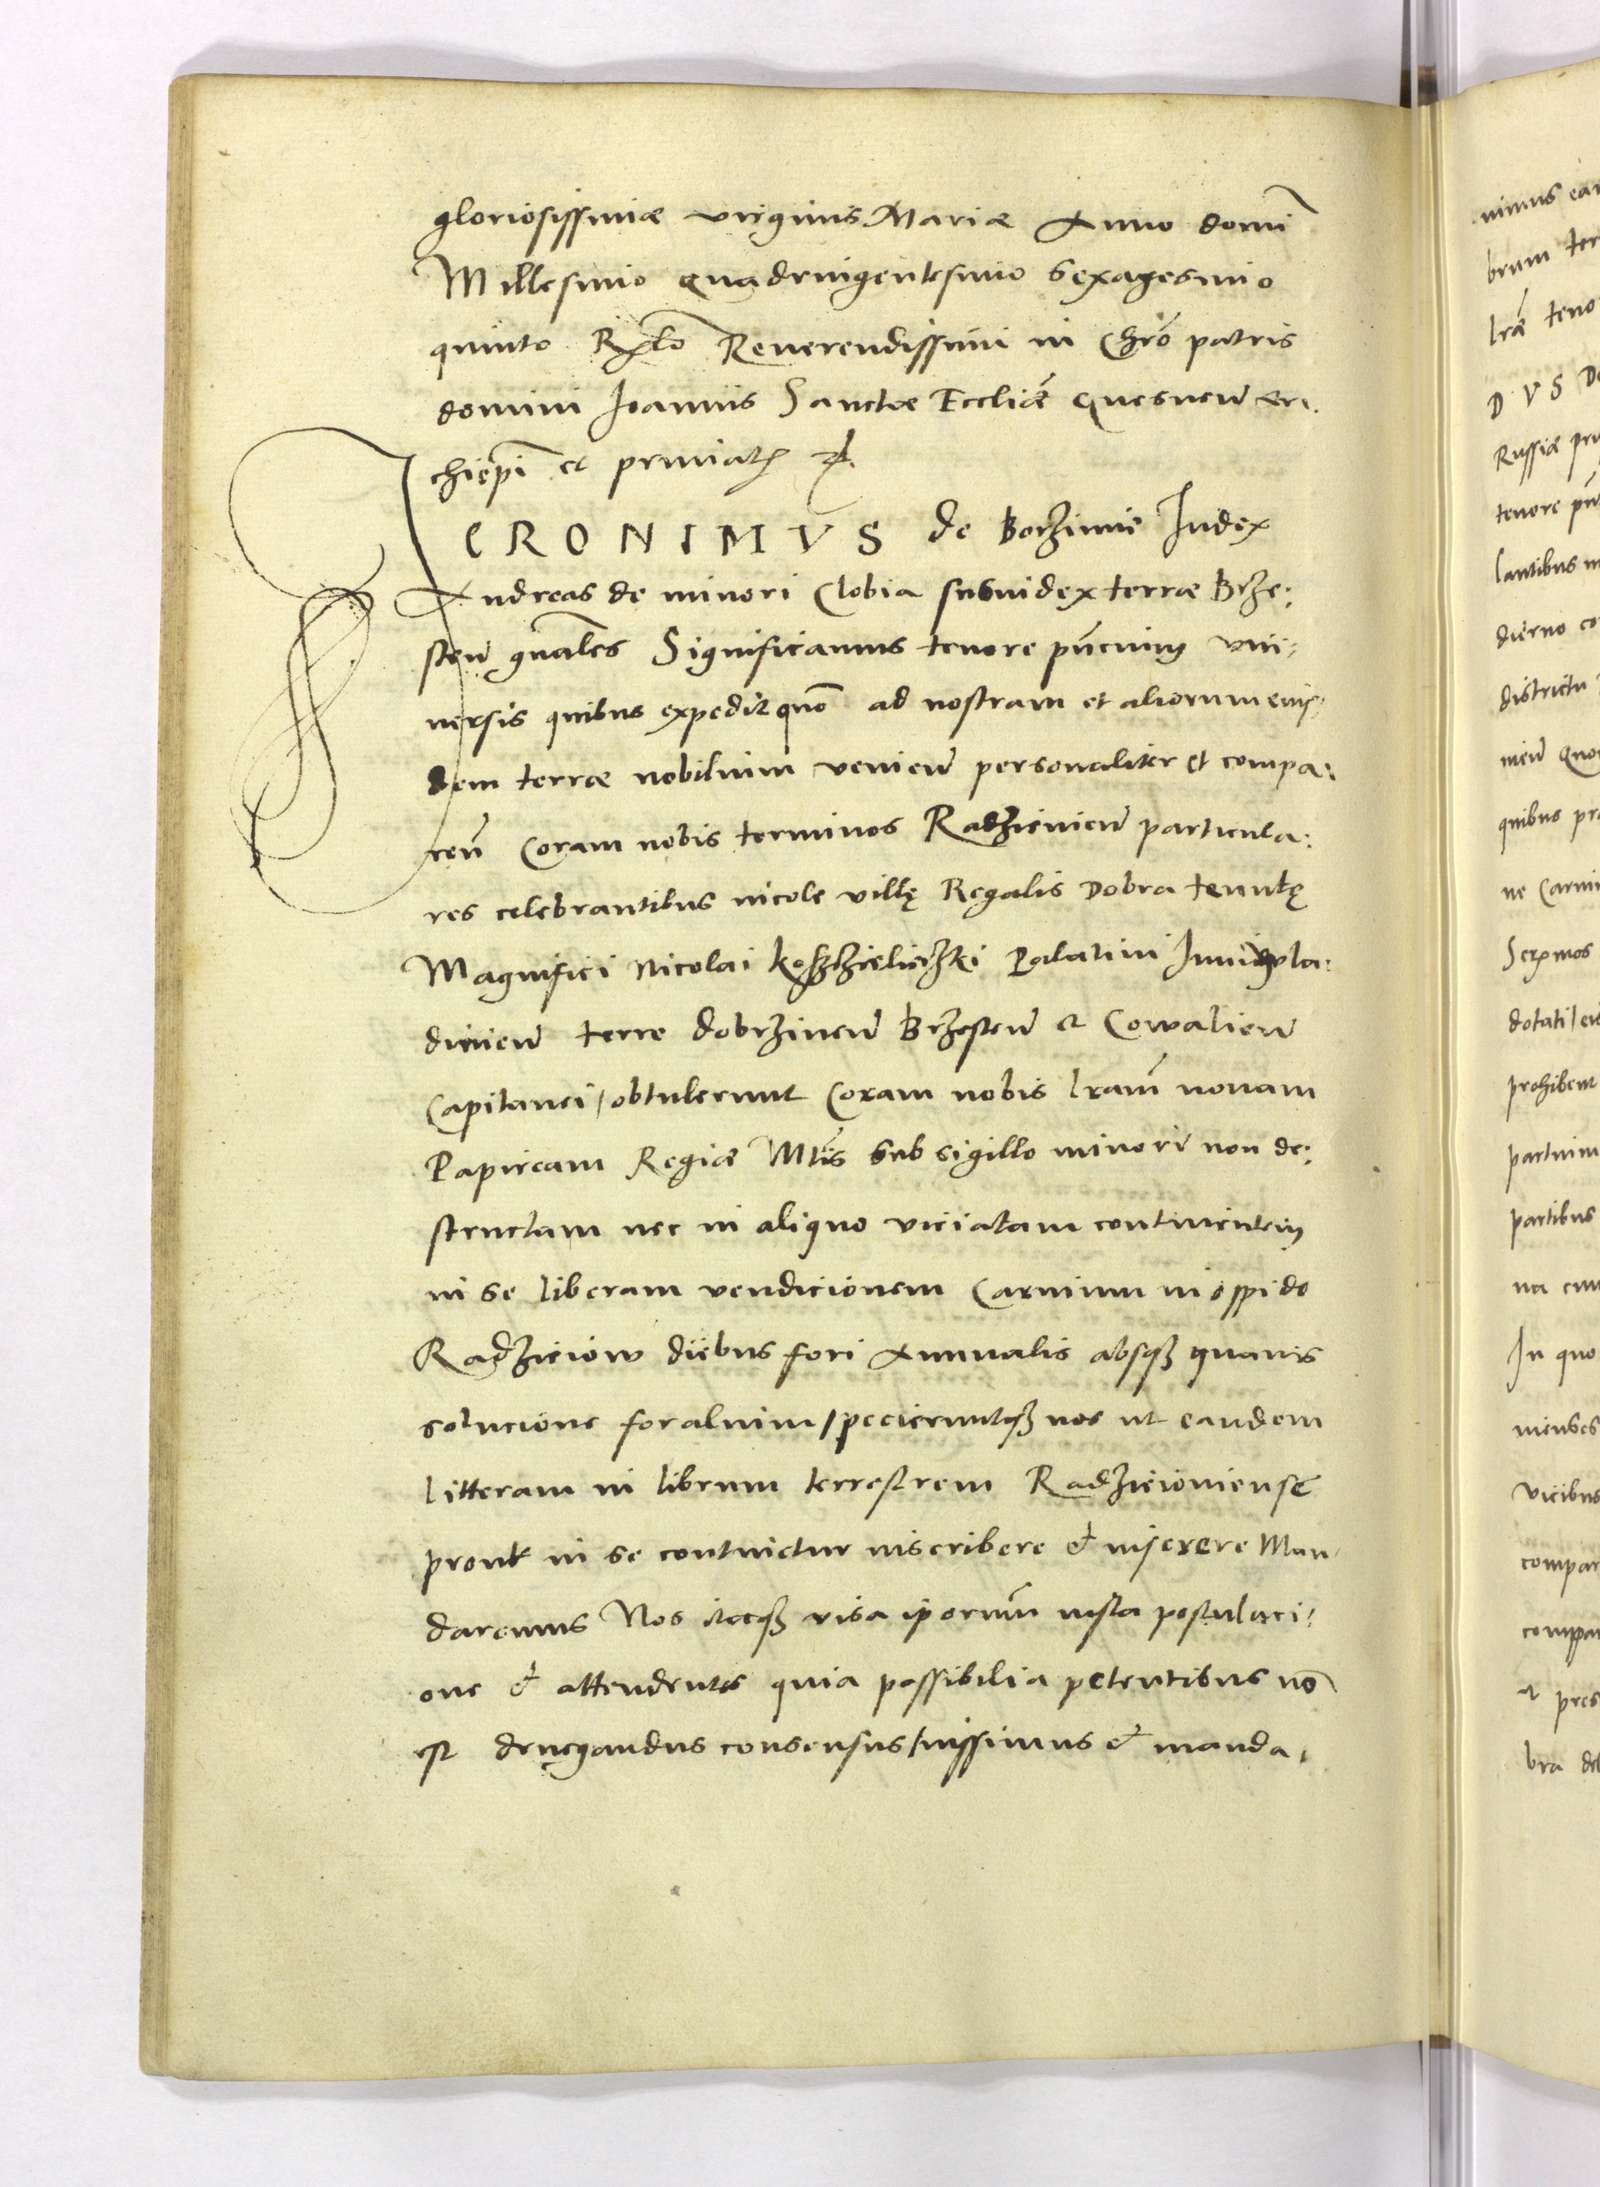 gloriosissimæ virginis Mariæ Anno domĩ
Millesimo quadringentesimo sexagesimo
quinto Reverendissimi in Chrõ patris
domini Ioannis Sanctæ Eccliæ Gnesnen ar:
chiepĩ et primatis
IERONIMVS de Borzimie Iudex
Andreas de minori Clobia subiudex terræ Brze:
sten gnãles Significamus tenore pñcium vni:
uersis quibus expedit quõ ad nostram et aliorum eius:
dem terræ nobilium venien personaliter et compa:
ren Coram nobis terminos Radzieiouien particula:
res celebrantibus incole villę Regalis Dobra tenutę
Magnifici Nicolai Koszczieliczki Palatini Iuniwla:
dinien terre dobrzinen Brzesten et Cowalien
Capitanei / obtulerunt Coram nobis lrãm nouam
Papiream Regiæ Mtis sub sigillo minori non de:
structam nec in aliquo viciatam continentem
in se liberam vendicionem Carnium in oppido
Radzieiow diebus fori Annualis absqz quauis
solucione foralium / pecieruntqz nos ut eandem
litteram in librum terrestrem Radzieiouiense
prout in se continetur inscribere et inserere Man
daremus Nos itaqz visa ipsorum iusta postulaci:
one et attendentes quia possibilia petentibus nõ
est denegandus consensus / iussimus et manda:
nimus ean
brum ter
lræ teno
DVS De
Russiæ pru
tenore pñ
lantibus in
dierno co
districtu
nien quo
quibus pr
ne Carni
Serimos
dotati / ei
prohibent
partium
partibus
na cum
In quo
nienses
vicibus
compar
compar
et pres
bra de